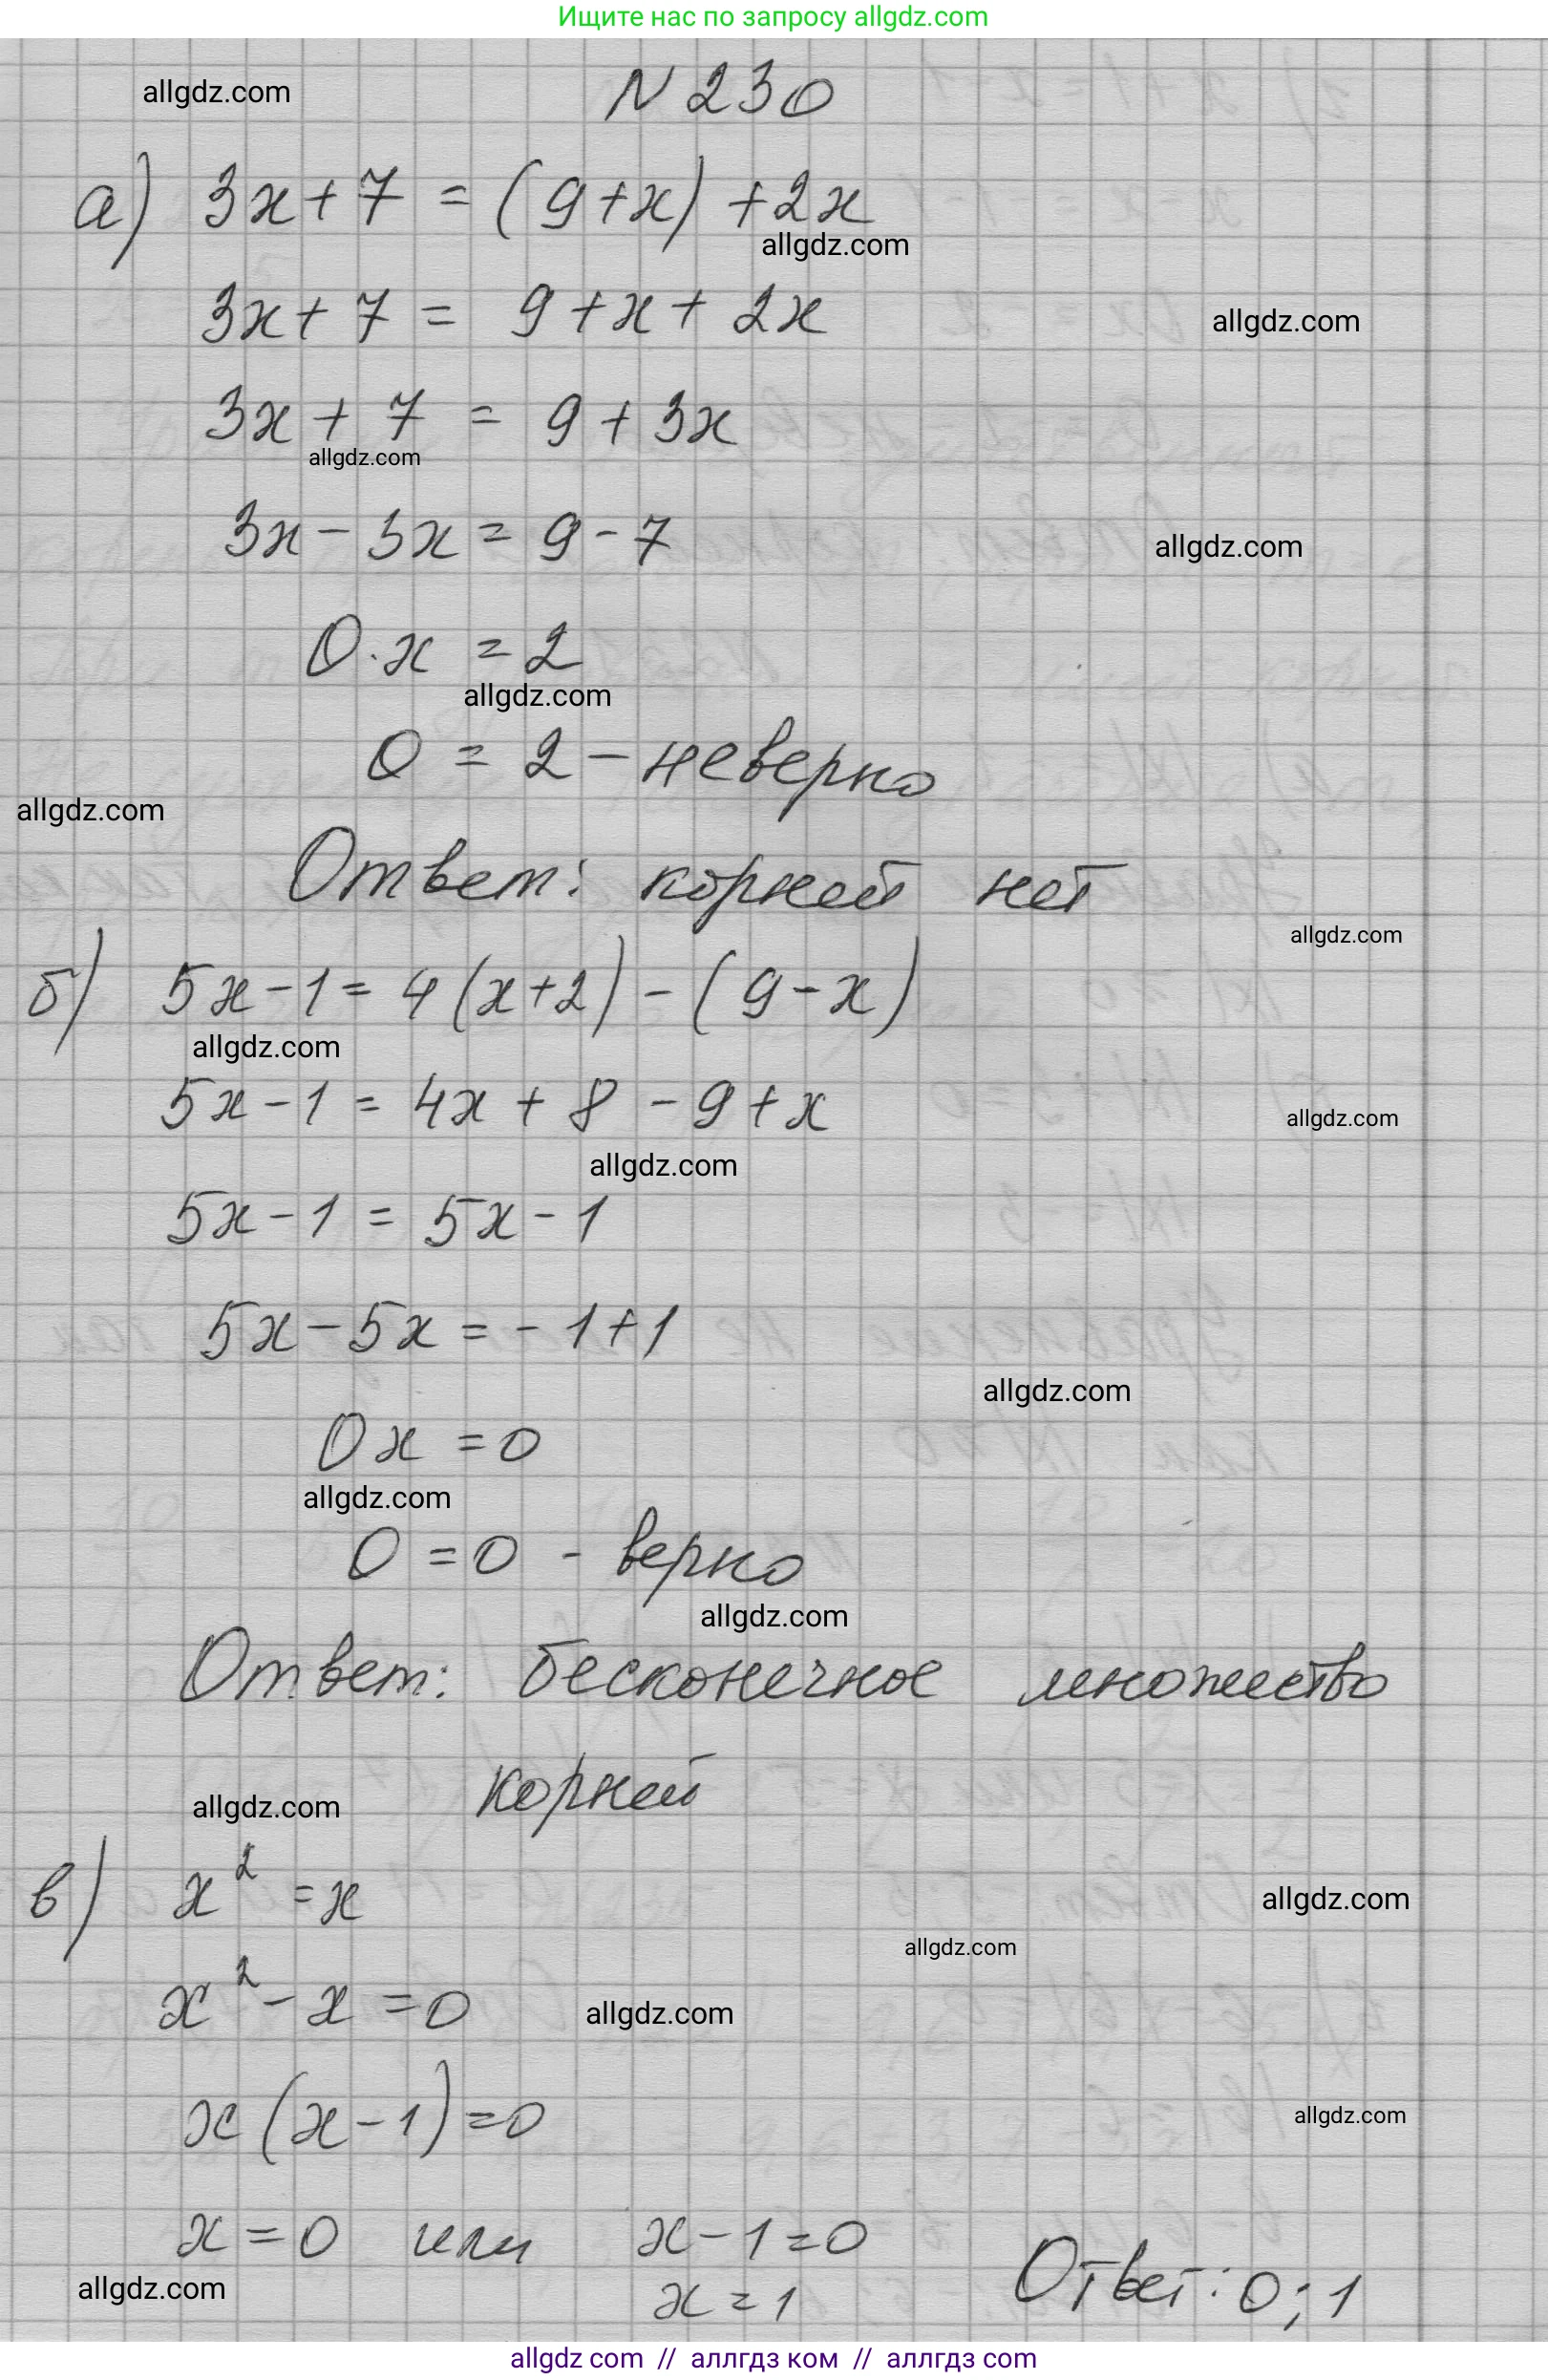 Ищите нас по запросу allgdz.com
allgdz.com
N 230
а) 3x + 7 = (9 + x) + 2x
allgdz.com
3x + 7 = 9 + x + 2x
allgdz.com
3x + 7 = 9 + 3x
allgdz.com
3x - 3x = 9 - 7
allgdz.com
0 · x = 2
allgdz.com
0 = 2 - неверно
allgdz.com
Ответ: корней нет
allgdz.com
б) 5x - 1 = 4(x + 2) - (9 - x)
allgdz.com
5x - 1 = 4x + 8 - 9 + x
allgdz.com
allgdz.com
5x - 1 = 5x - 1
5x - 5x = -1 + 1
allgdz.com
0x = 0
allgdz.com
0 = 0 - верно
allgdz.com
Ответ: бесконечное множество
корней
allgdz.com
в) x² = x
allgdz.com
allgdz.com
x² - x = 0
allgdz.com
x(x - 1) = 0
allgdz.com
x = 0 или x - 1 = 0
x = 1
Ответ: 0; 1
allgdz.com
allgdz com // аллгдз ком // аллгдз com